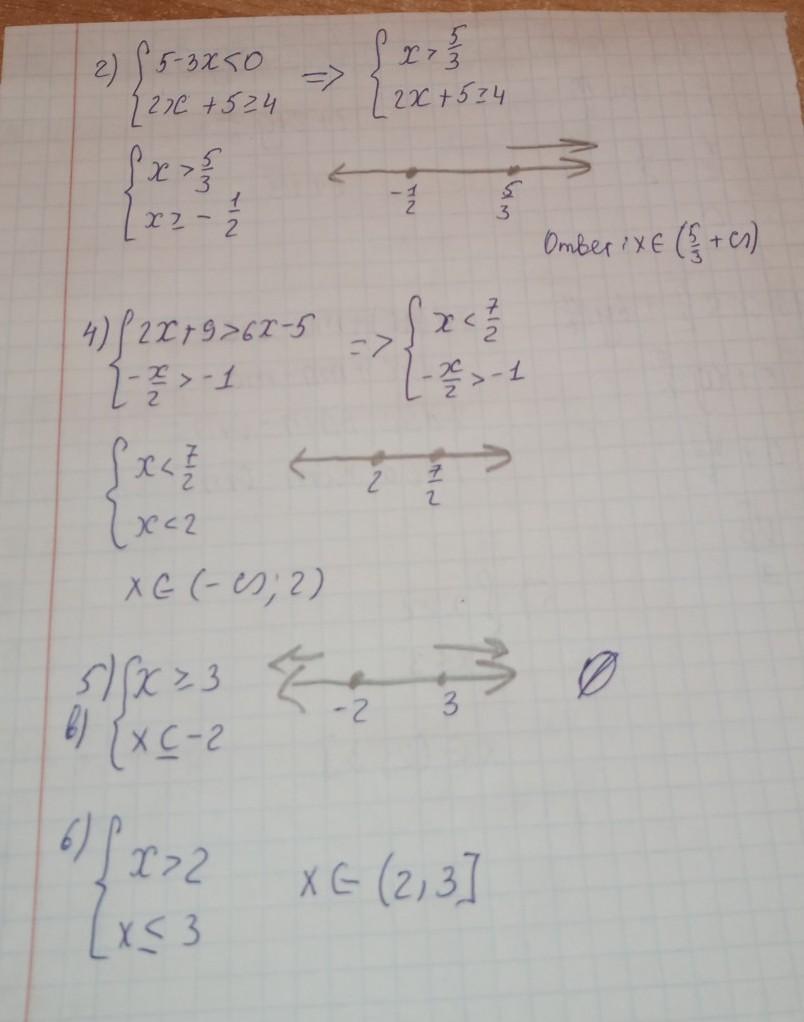 г) { 5-3x<0 => { x > 5/3
2x+5≥4 2x+5≥4
{ x > 5/3
x ≥ - 1/2
-1/2 5/3
Ответ: x∈(5/3 +∞)
4) { 2x+9>6x-5 => { x < 7/2
-x/2 > -1 -x/2 > -1
{ x < 7/2
x < 2
2 7/2
x∈(-∞; 2)
5) { x ≥ 3
в) x ≤ -2
-2 3 ∅
6) { x > 2
x ≤ 3
x∈(2, 3]